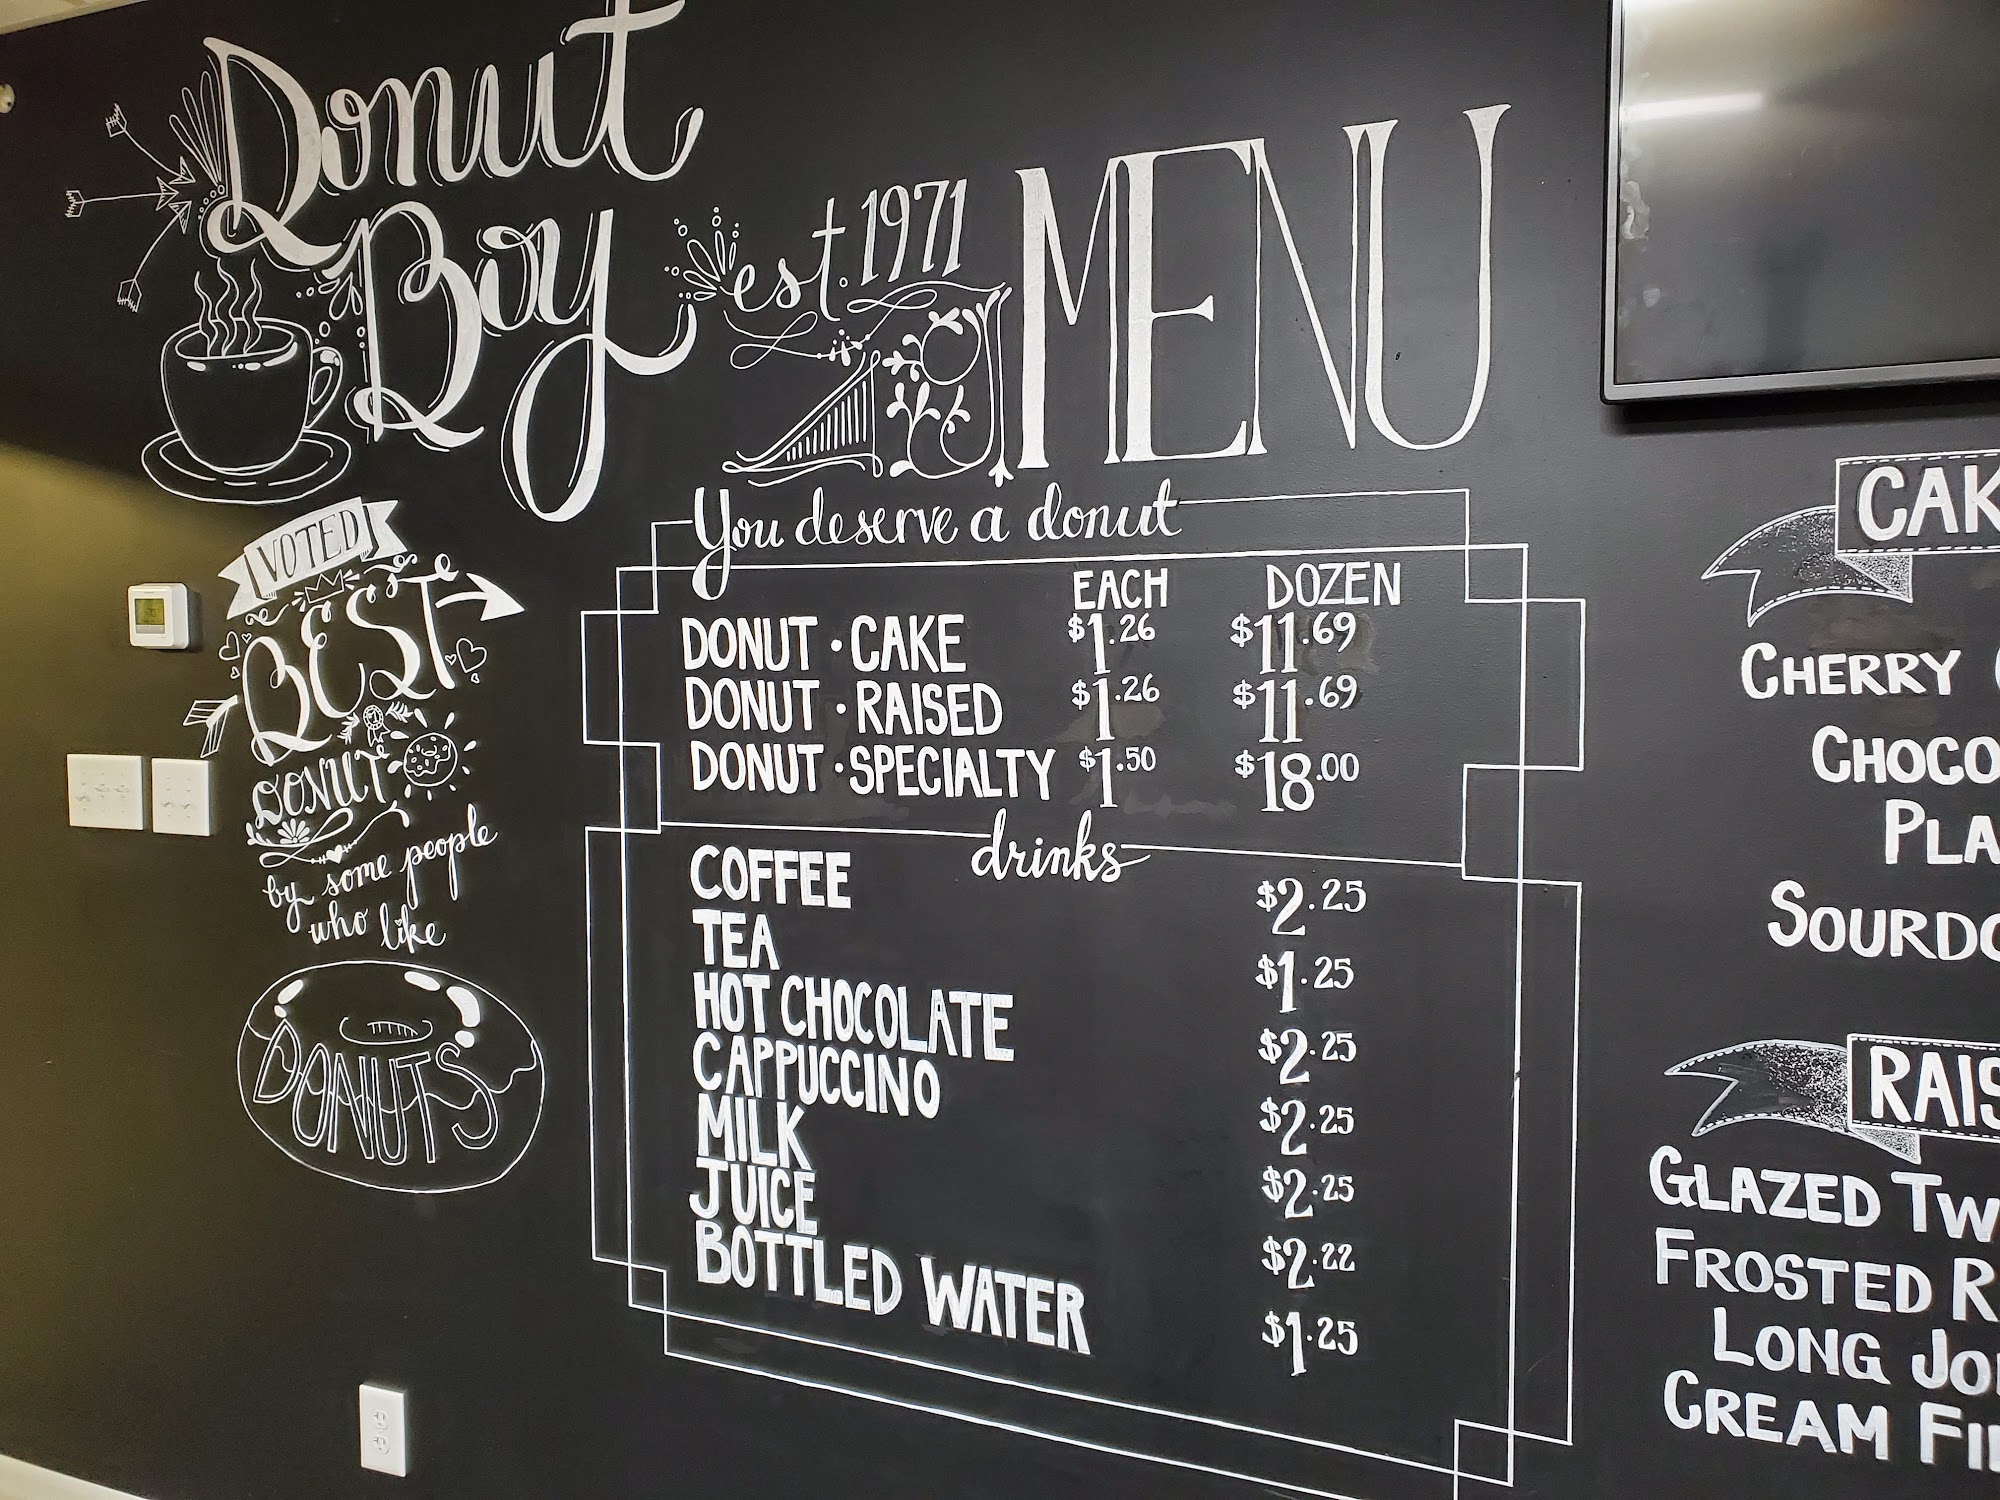 Donut
Boy
est. 1971
MENU
VOTED
BEST
DONUT
by some people
who like
DONUTS
You deserve a donut
EACH DOZEN
DONUT • CAKE $1.26 $11.69
DONUT • RAISED $1.26 $11.69
DONUT • SPECIALTY $1.50 $18.00
drinks
COFFEE $2.25
TEA $1.25
HOT CHOCOLATE $2.25
CAPPUCCINO $2.25
MILK $2.25
JUICE $2.22
BOTTLED WATER $1.25
CAK
CHERRY
CHOCO
PLA
SOURDO
RAIS
GLAZED TW
FROSTED R
LONG JO
CREAM FI